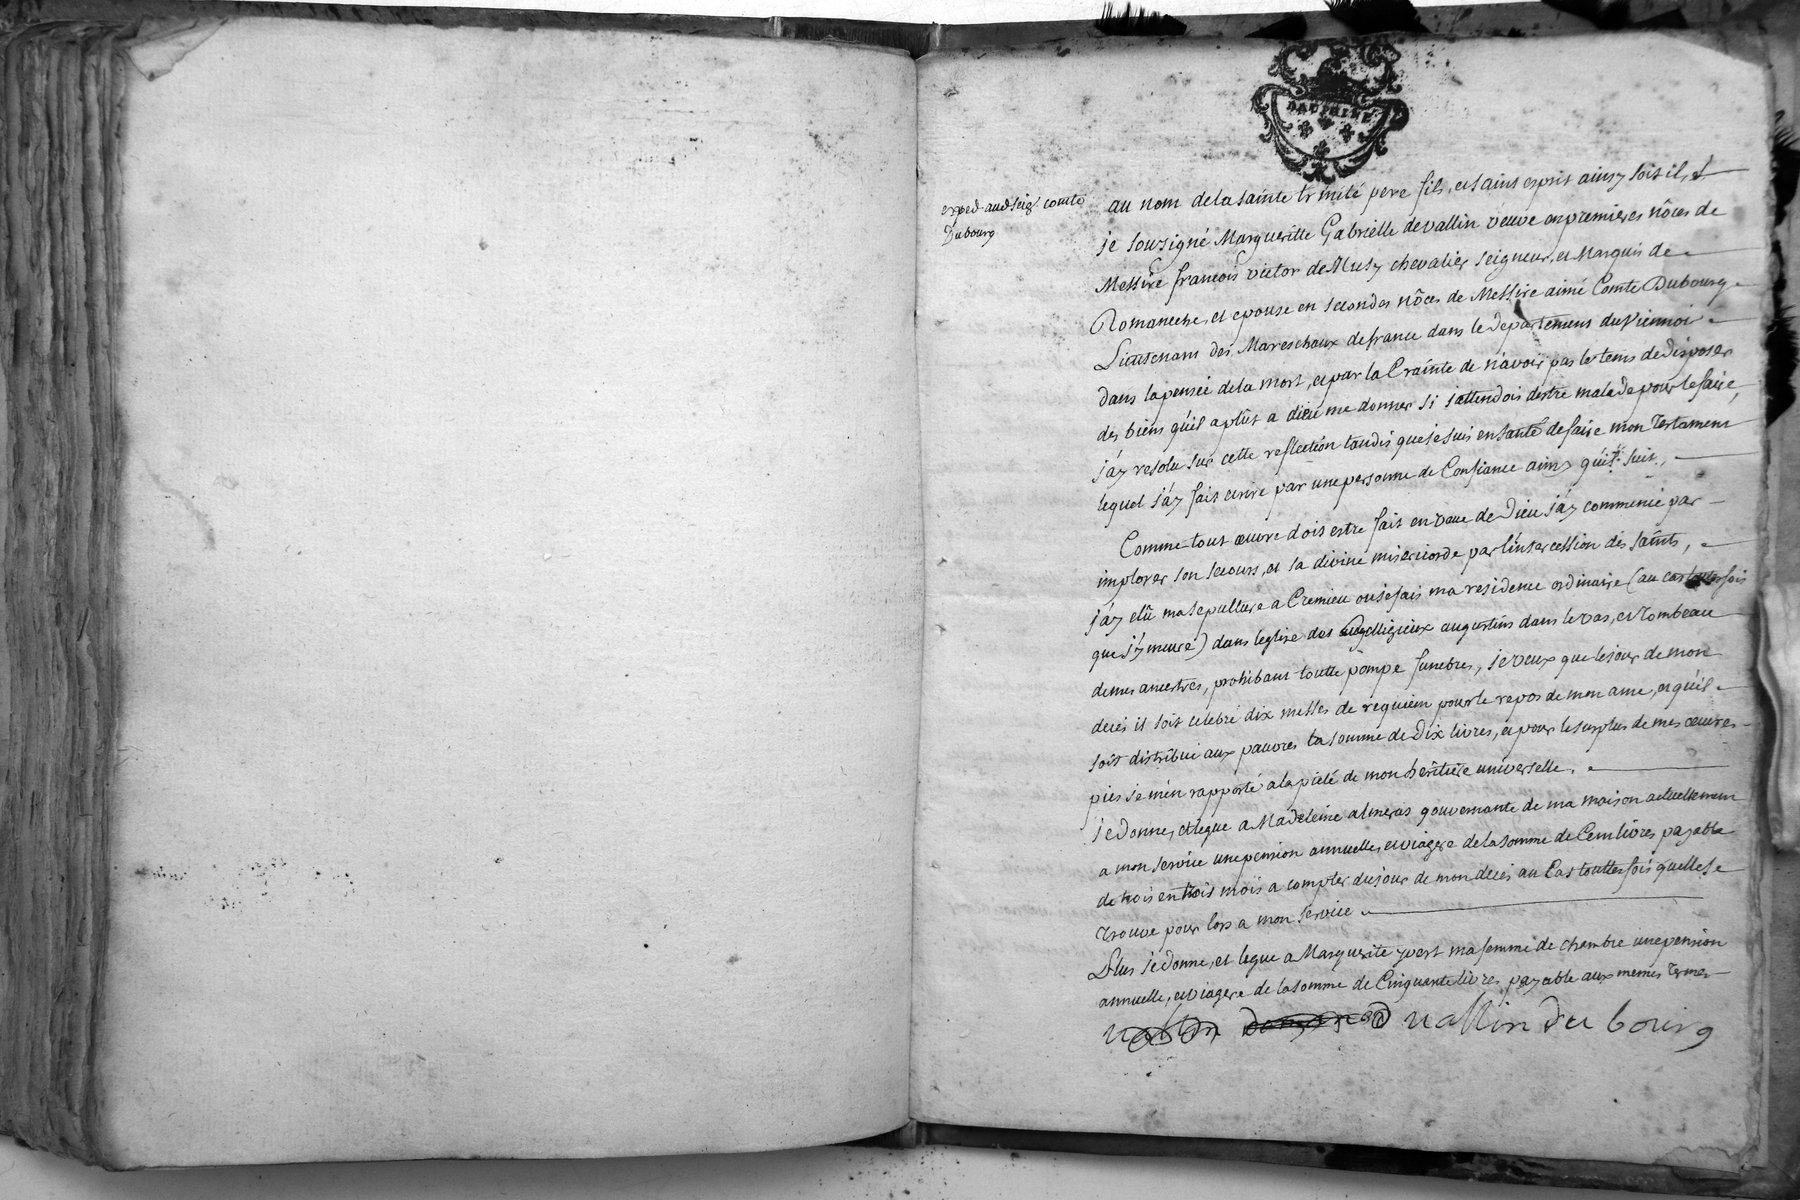 DAUPHINE
exped. audseigr. comte
Dubourg
au nom de la sainte trinité pere fils, et saint esprit ainsy soit il, &
je sousigné Margueritte Gabrielle devallin veuve en premieres nôces de
Messire francois victor de Musy chevalier seigneur, et Marquis de
Romaneche, et epouse en secondes nôces de Messire aimé Comte Dubourg
Lieutenant des Mareschaux de france dans le departement du Viennois
dans la pensée de la mort, et par la Crainte de n'avoir pas le tems de disposer
des biens qu'il a plût a dieu me donner si j'attendois destre malade pour le faire,
j'ay resolu sur cette reflection tandis que je suis en santé de faire mon Testament
lequel j'ay fait ecrire par une personne de Confiance ainsy qu'il suit,
Comme tout œuvre doit estre fait en veue de Dieu j'ay commencé par
implorer son secours, et sa divine misericorde par l'intercession des saints,
j'ay elû ma sepulture a Cremieu ou je fais ma residence ordinaire (au cas toutesfois
que j'y meure) dans leglise des Religieux augustins dans le vas, et Tombeau
de mes ancestres, prohibant toutte pompe funebres, je veux que le jour de mon
decés il soit celebré dix messes de requiem pour le repos de mon ame, et qu'il
soit distribué aux pauvres la somme de Dix livres, et pour le surplus de mes œuvres
pies je m'en rapporte a la pieté de mon heritiere universelle.
je donne, et legue a Madeleine almeras gouvernante de ma maison actuellement
a mon service une pension annuelle, et viagere de la somme de Cent livres payable
de trois en trois mois a compter du jour de mon decés au Cas touttesfois quelle se
Trouve pour lors a mon service
Plus je donne, et legue a Marguerite yvert ma femme de chambre une pension
annuelle, et viagere de la somme de Cinquante livres payable aux memes Termes
vallin du bourg